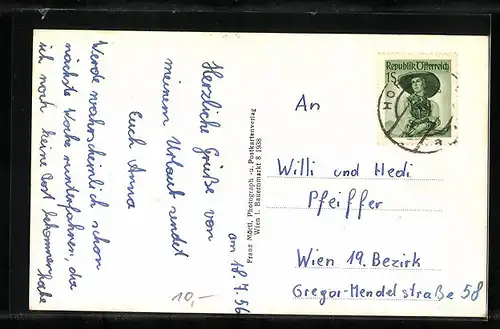 am 18.7.56
Herzliche Grüße von
meinem Urlaub sendet
Euch Anna
Werde wahrscheinlich schon
nächste Woche runterfahren, da
ich noch keine Post bekommen habe
10,-
Franz Mörtl, Photograph- u. Postkartenverlag
Wien I. Bauernmarkt 8 1938
Republik Österreich
1S
HO
a
An
Willi und Hedi
Pfeiffer
Wien 19. Bezirk
Gregor-Mendelstraße 58